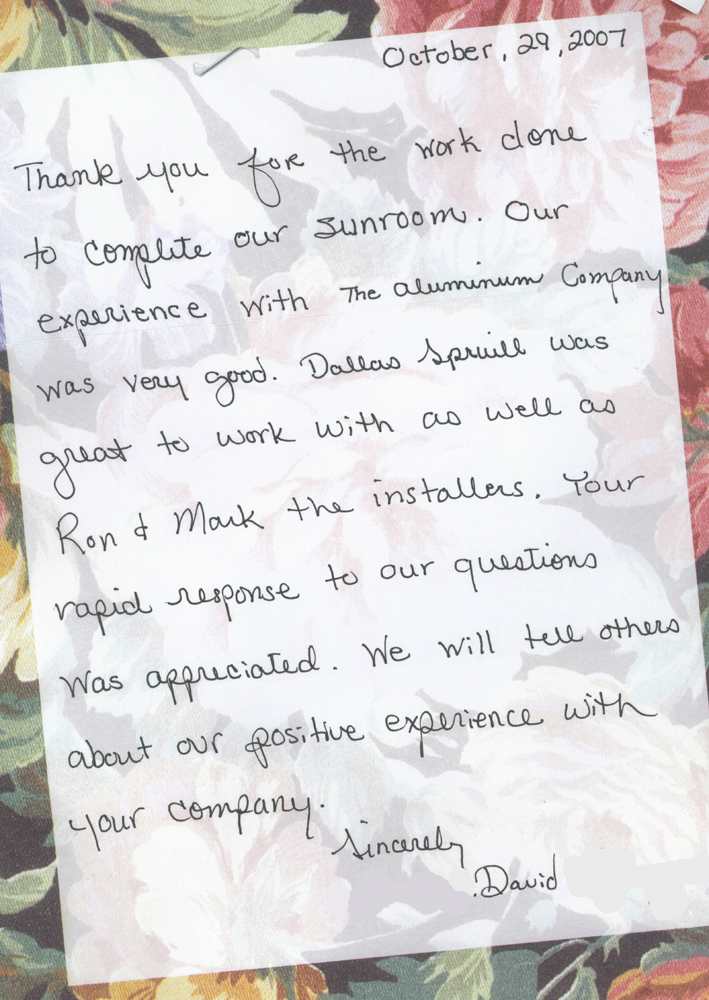 October, 29, 2007
Thank you for the work done
to complete our sunroom. Our
experience with The aluminum Company
was very good. Dallas Spruill was
great to work with as well as
Ron & Mark the installers. Your
rapid response to our questions
was appreciated. We will tell others
about our positive experience with
your company.
Sincerely
David